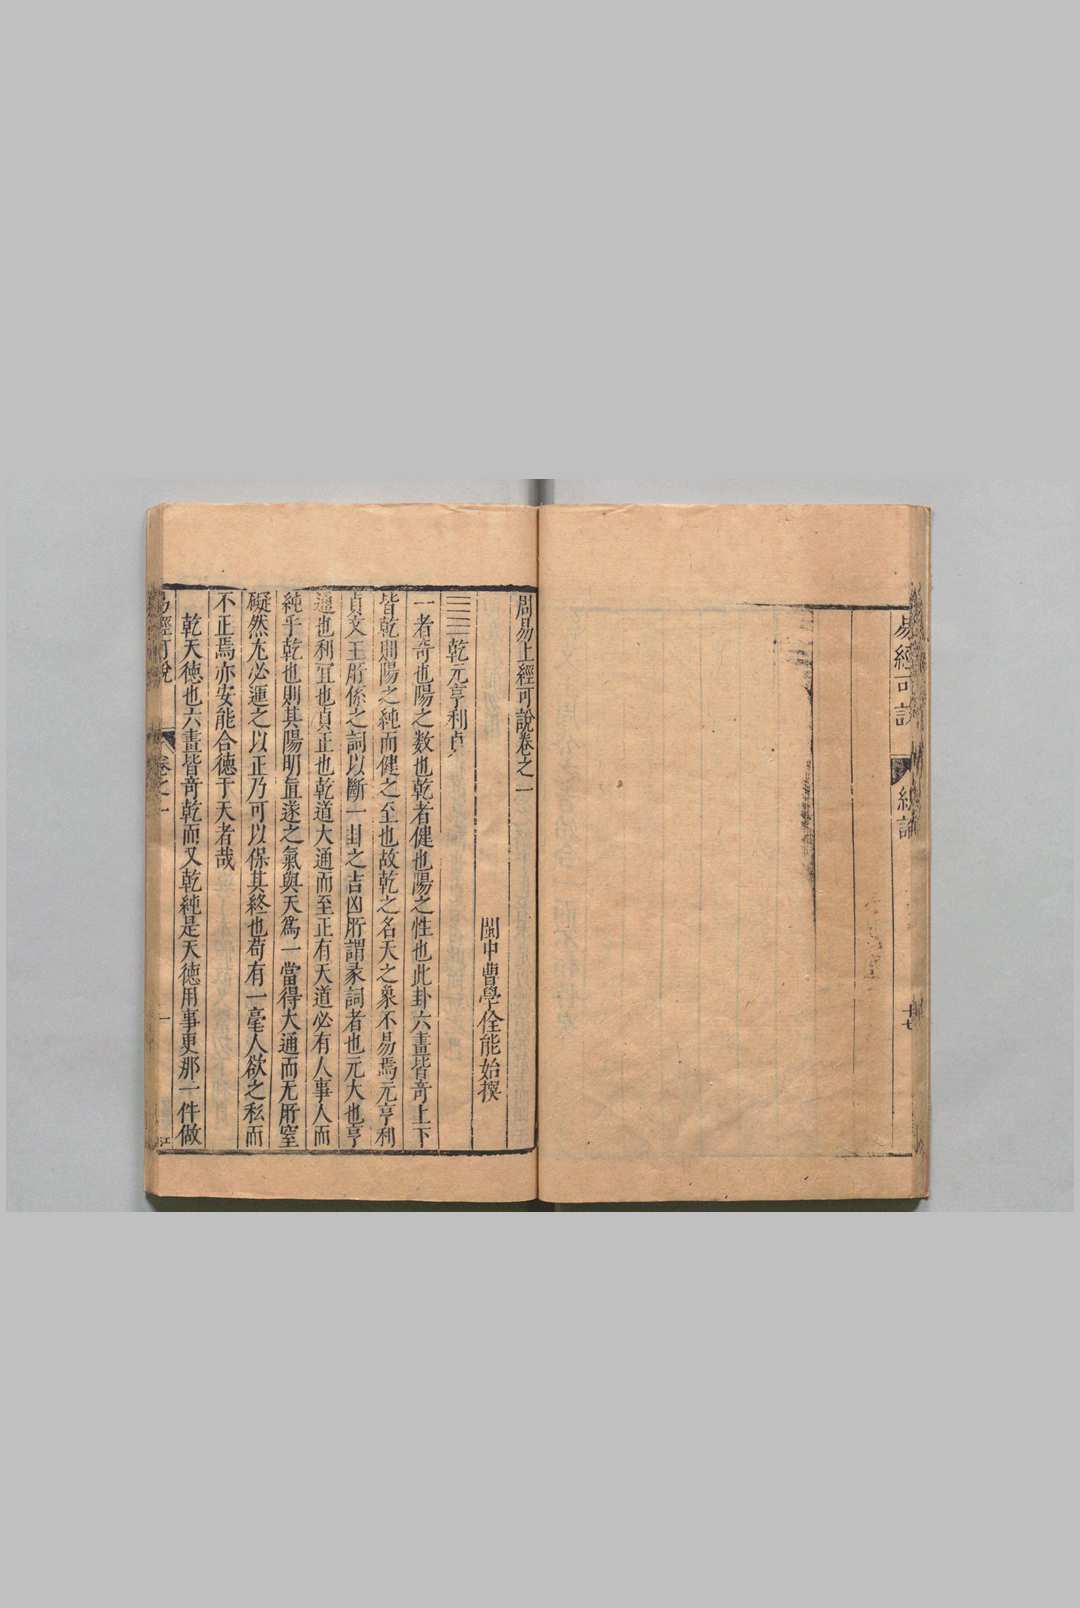 易經可說
十七
周易上經可說卷之一
閩中曹學佺能始撰
乾元亨利貞
一者奇也陽之数也乾者健也陽之性也此卦六畫皆竒上下
皆乾則陽之純而健之至也故乾之名天之象不易焉元亨利
貞文王所係之詞以斷一卦之吉凶所謂彖詞者也元大也亨
通也利宜也貞正也乾道大通而至正有天道必有人事人而
純乎乾也則其陽明直遂之氣與天爲一當得大通而无所窒
礙然尤必運之以正乃可以保其終也苟有一毫人欲之私而
不正焉亦安能合德于天者哉
乾天德也六畫皆竒乾而又乾純是天德用事更那一件做
易經可說
卷之一
一
江